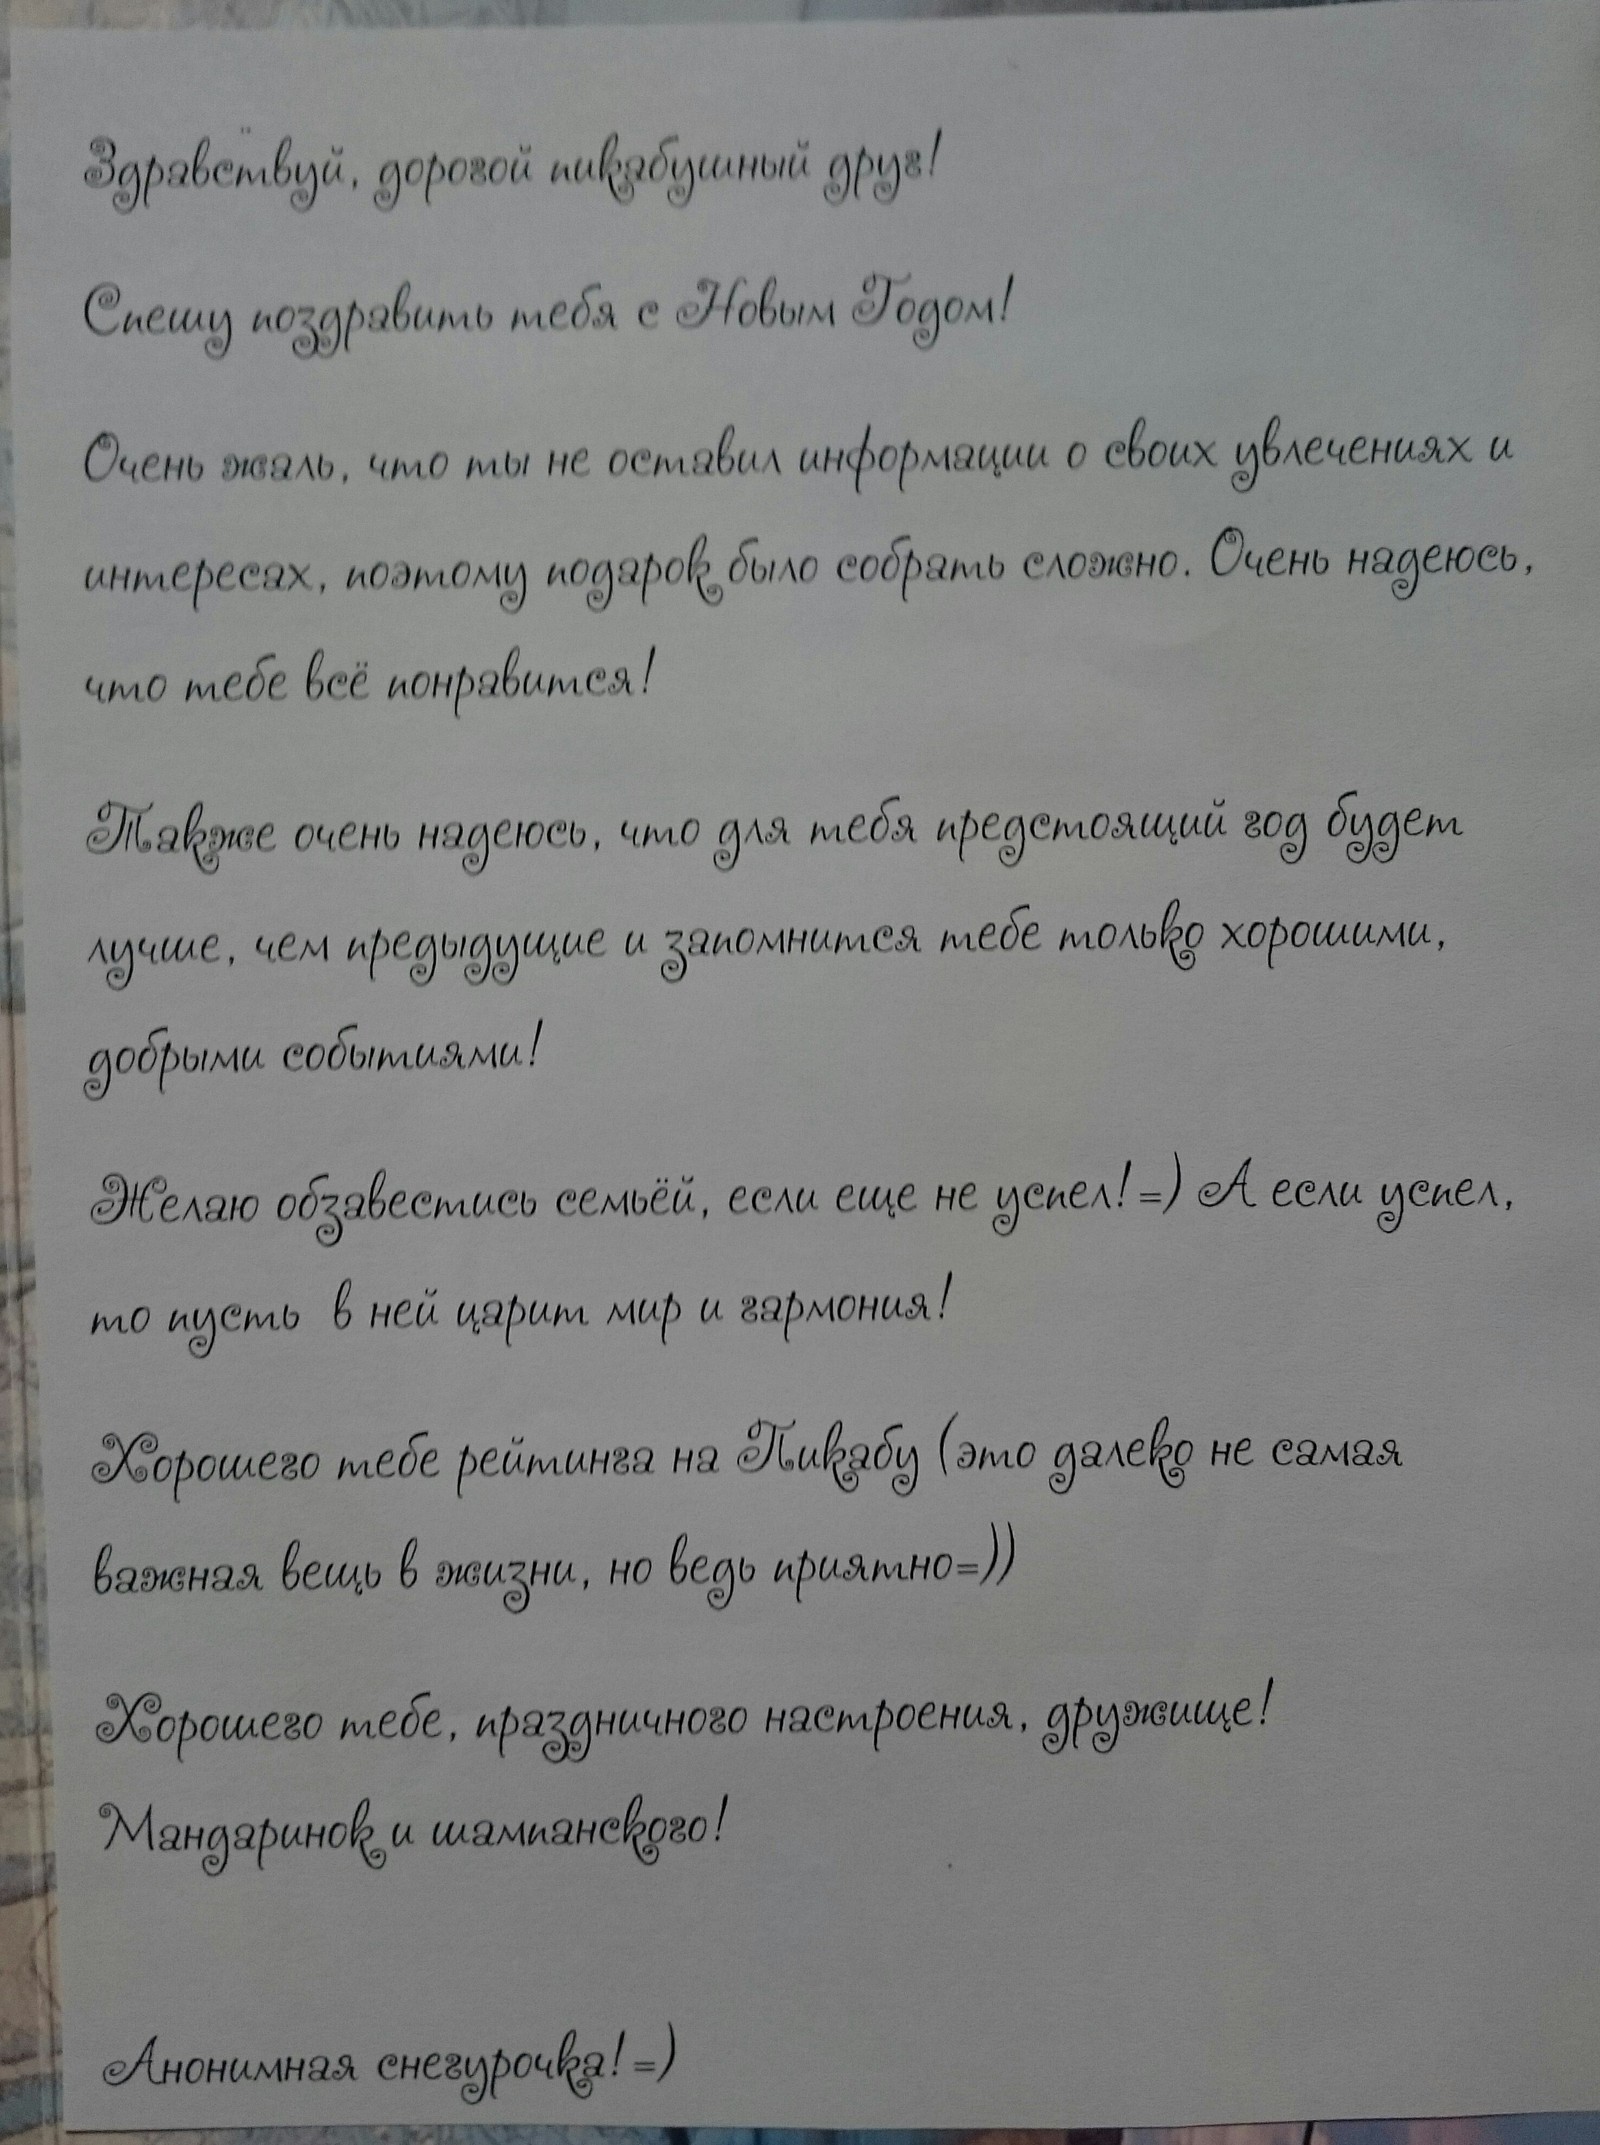 Здравствуй, дорогой пикабушный друг!
Спешу поздравить тебя с Новым Годом!
Очень жаль, что ты не оставил информации о своих увлечениях и
интересах, поэтому подарок было собрать сложно. Очень надеюсь,
что тебе всё понравится!
Также очень надеюсь, что для тебя предстоящий год будет
лучше, чем предыдущие и запомнится тебе только хорошими,
добрыми событиями!
Желаю обзавестись семьёй, если еще не успел! =) А если успел,
то пусть в ней царит мир и гармония!
Хорошего тебе рейтинга на Пикабу (это далеко не самая
важная вещь в жизни, но ведь приятно=))
Хорошего тебе, праздничного настроения, дружище!
Мандаринок и шампанского!
Анонимная снегурочка! =)